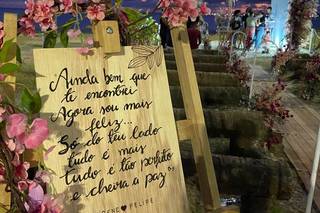 Ainda bem que
te encontrei
Agora sou mais
feliz...
Só do teu lado
tudo é mais
tudo é tão perfeito
e cheira a paz
♥ FELIPE